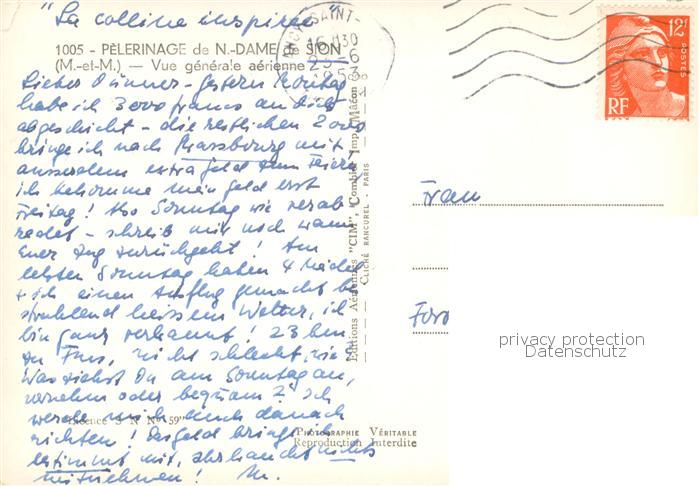 "La colline inspirée"
1005 - PÈLERINAGE de N.-DAME de SION
(M.-et-M.) — Vue générale aérienne
Lieber Männer - gestern Montag
habe ich 3000 francs an Dich
abgeschickt - die restlichen 2000
bringe ich nach Strassbourg mit
ausserdem extra Geld zum Feiern
ich bekomme mein Geld erst
Freitag! Also Sonntag wie verab
redet - schreib mir noch wann
Euer Zug zurückgeht! Am
letzten Sonntag haben 4 Mädel
+ ich einen Ausflug gemacht bei
strahlend heissem Wetter, ich
bin ganz verbrannt! 23 km
zu Fuss, nicht schlecht, wie?
Was ziehst Du am Sonntag an,
vornehm oder bequem? Ich
werde mich auch danach
richten! Das Geld bringe ich
bestimmt mit, ihr braucht nichts
mitnehmen! M.
Licence S N N° 59
SAINT-
16 30
1953
12F
POSTES
RF
Editions Aériennes "CIM", Combier Imp. Mâcon
CLICHÉ RANCUREL - PARIS
Frau
privacy protection
Datenschutz
PHOTOGRAPHIE VÉRITABLE
Reproduction Interdite